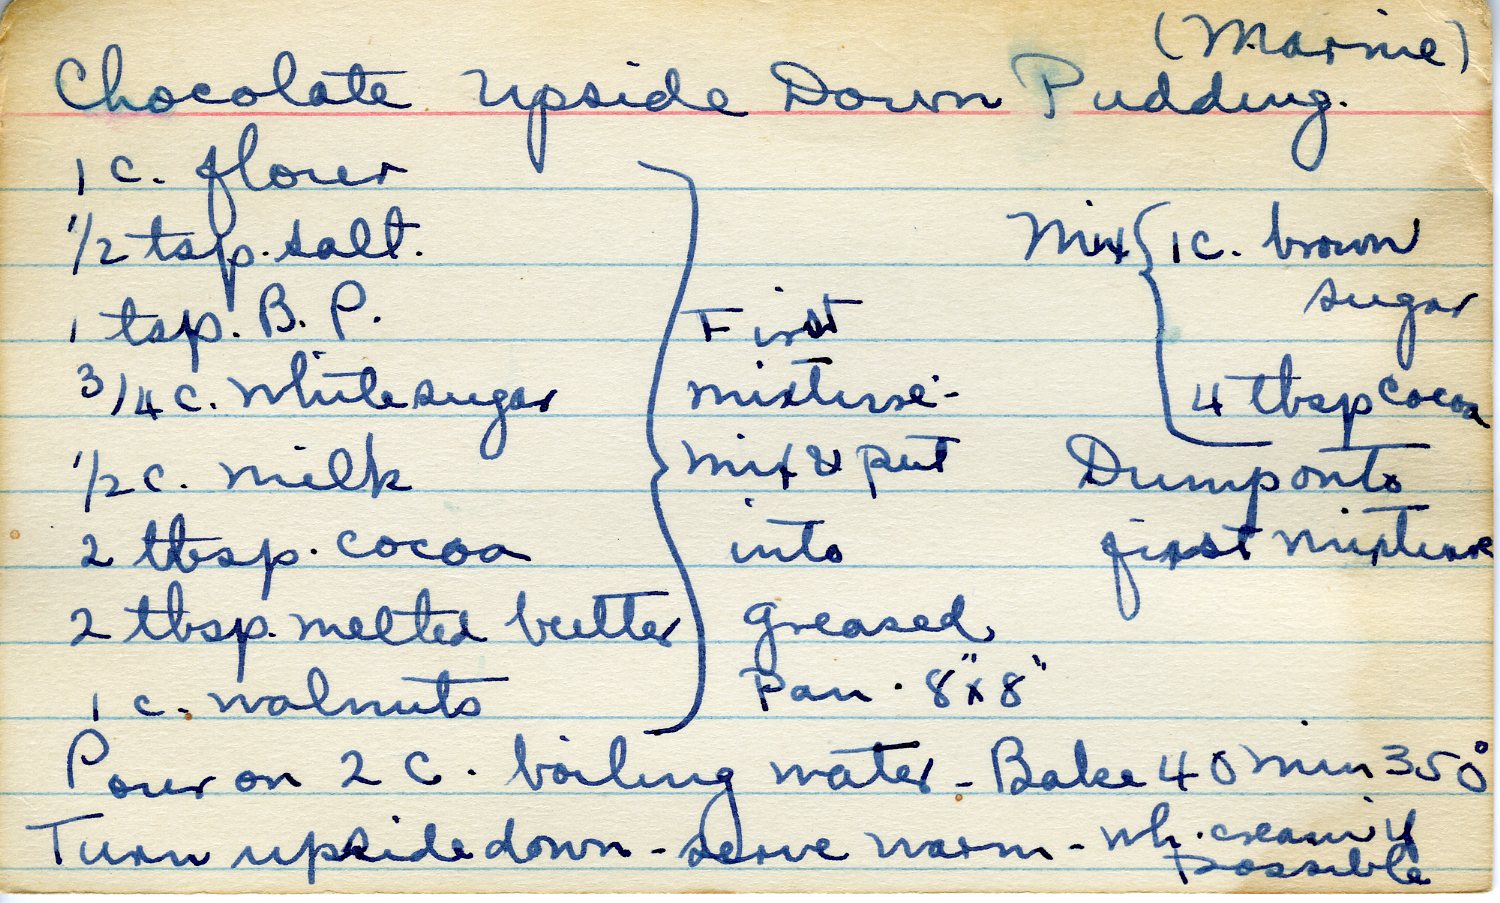 (Marnie)
Chocolate Upside Down Pudding.
1 c. flour
1/2 tsp. salt.
1 tsp. B. P.
3/4 c. white sugar
1/2 c. milk
2 tbsp. cocoa
2 tbsp. melted butter
1 c. walnuts
First
mixture-
mix & put
into
greased
Pan. 8"x8"
Mix { 1 c. brown
sugar
4 tbsp cocoa
Dump onto
first mixture
Pour on 2 c. boiling water - Bake 40 min 350°
Turn upside down - serve warm - wh. cream if
possible